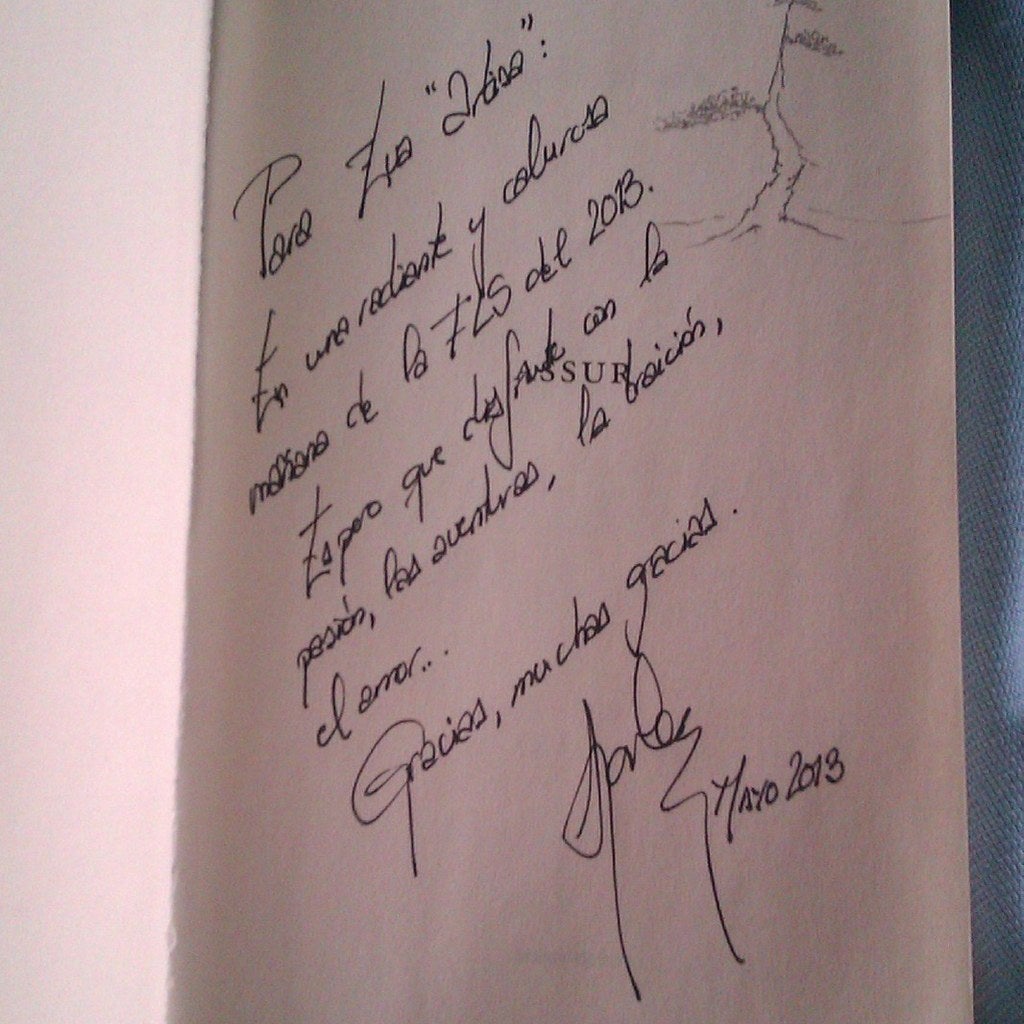 Para Eva "Artisa":
En una radiante y calurosa
mañana de la FLS del 2013.
Espero que disfrute con la
pasión, las aventuras, la traición,
el amor...
Gracias, muchas gracias.
MAYO 2013
ASSUR